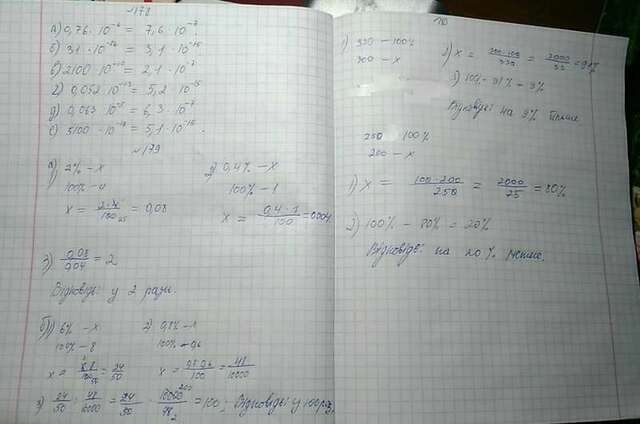 №178
а) 0,76 · 10⁻⁶ = 7,6 · 10⁻⁷.
б) 31 · 10⁻¹⁶ = 3,1 · 10⁻¹⁵
в) 2100 · 10⁻¹⁰ = 2,1 · 10⁻⁷
г) 0,052 · 10⁻¹³ = 5,2 · 10⁻¹⁵
д) 0,063 · 10⁻⁵ = 6,3 · 10⁻⁷
е) 5100 · 10⁻¹⁸ = 5,1 · 10⁻¹⁵.
№179
2% – x
100% – 4
x = = 0,08
2) 0,4% – x
100% – 1
x = 0,4 · 1 / 100 = 0,004.
3) 0,08 / 0,04 = 2
Відповідь: у 2 рази.
б) 1) 6% – x
100% – 8
x = = 24/50
2) 0,8% – x
100% – 0,6
x = / 100 = 48/10000
3) 24/50 : 48/10000 = 24/50 · 10000/48 = 100; Відповідь: у 100 раз.
1) 330 – 100%
300 – x
2) x = 300·100 / 330 = / 33 = 91%
3) 100% – 91% = 9%
Відповідь: на 9% більше
250 – 100%
200 – x
1) x = 100·200 / 250 = 2000 / 25 = 80%
2) 100% – 80% = 20%
Відповідь: на 20% менше.